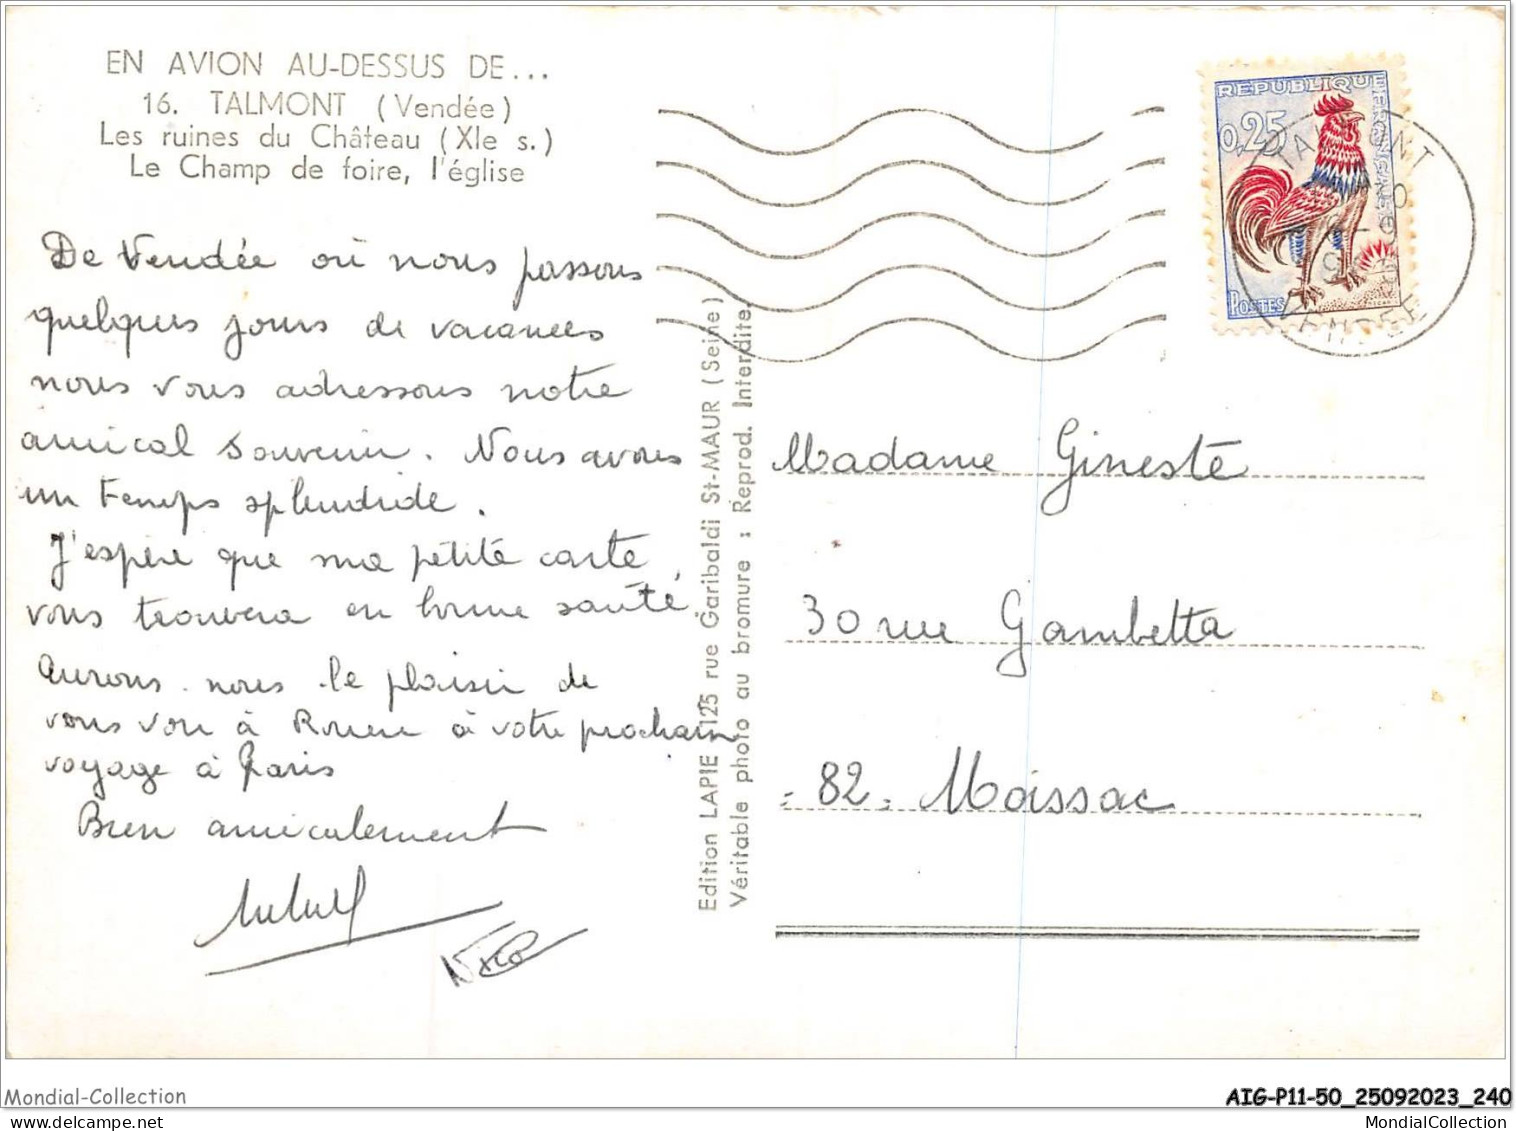 EN AVION AU-DESSUS DE...
16. TALMONT (Vendée)
Les ruines du Château (XIe s.)
Le Champ de foire, l'église
De Vendée où nous passons
quelques jours de vacances
nous vous adressons notre
amical souvenir. Nous avons
un temps splendide.
J'espère que ma petite carte
vous trouvera en bonne santé,
Aurons-nous le plaisir de
vous voir à Rouen à votre prochain
voyage à Paris
Bien amicalement
Edition LAPIE, 125 rue Garibaldi St-MAUR (Seine)
Véritable photo au bromure : Reprod. Interdite.
REPUBLIQUE FRANÇAISE
0,25
POSTES
TALMONT
VENDEE
Madame Gineste
30 rue Gambetta
82. Moissac
Mondial-Collection
AIG-P11-50_25092023_240
delcampe.net
MondialCollection